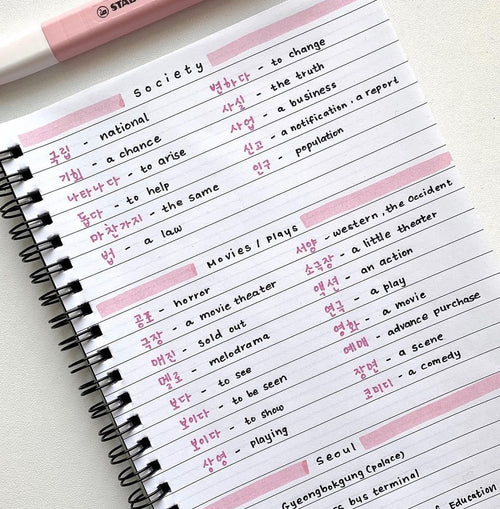 STAB
Society
국립 - national
기회 - a chance
나타나다 - to arise
돕다 - to help
마찬가지 - the same
법 - a law
변하다 - to change
사실 - the truth
사업 - a business
신고 - a notification, a report
인구 - population
Movies / Plays
공포 - horror
극장 - a movie theater
매진 - sold out
멜로 - melodrama
보다 - to see
보이다 - to be seen
보이다 - to show
상영 - playing
서양 - western, the Occident
소극장 - a little theater
액션 - an action
연극 - a play
영화 - a movie
예매 - advance purchase
장면 - a scene
코미디 - a comedy
Seoul
Gyeongbokgung (palace)
bus terminal
of Education